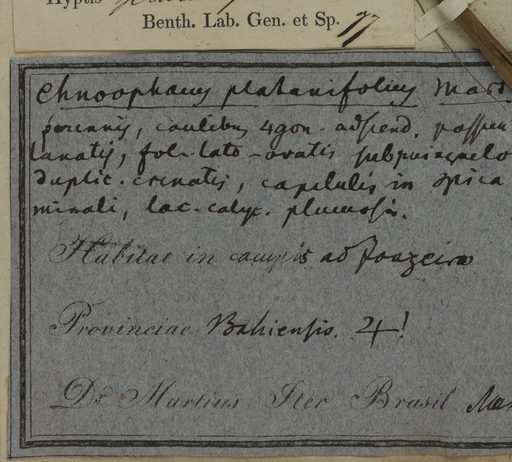 Hyptis
Benth. Lab. Gen. et Sp. 77
Chnoophanus platanifolius Mart
perennis, caulibus 4gon. adscend.
lanatis, foli. lato-ovatis
duplic. crenatis, capitulis in spica
minali, lac. calyc. plumosis.
Habitat in campis ad Joazeiro
Provinciae Bahiensis. ♃!
Dr Martius Iter Brasil.